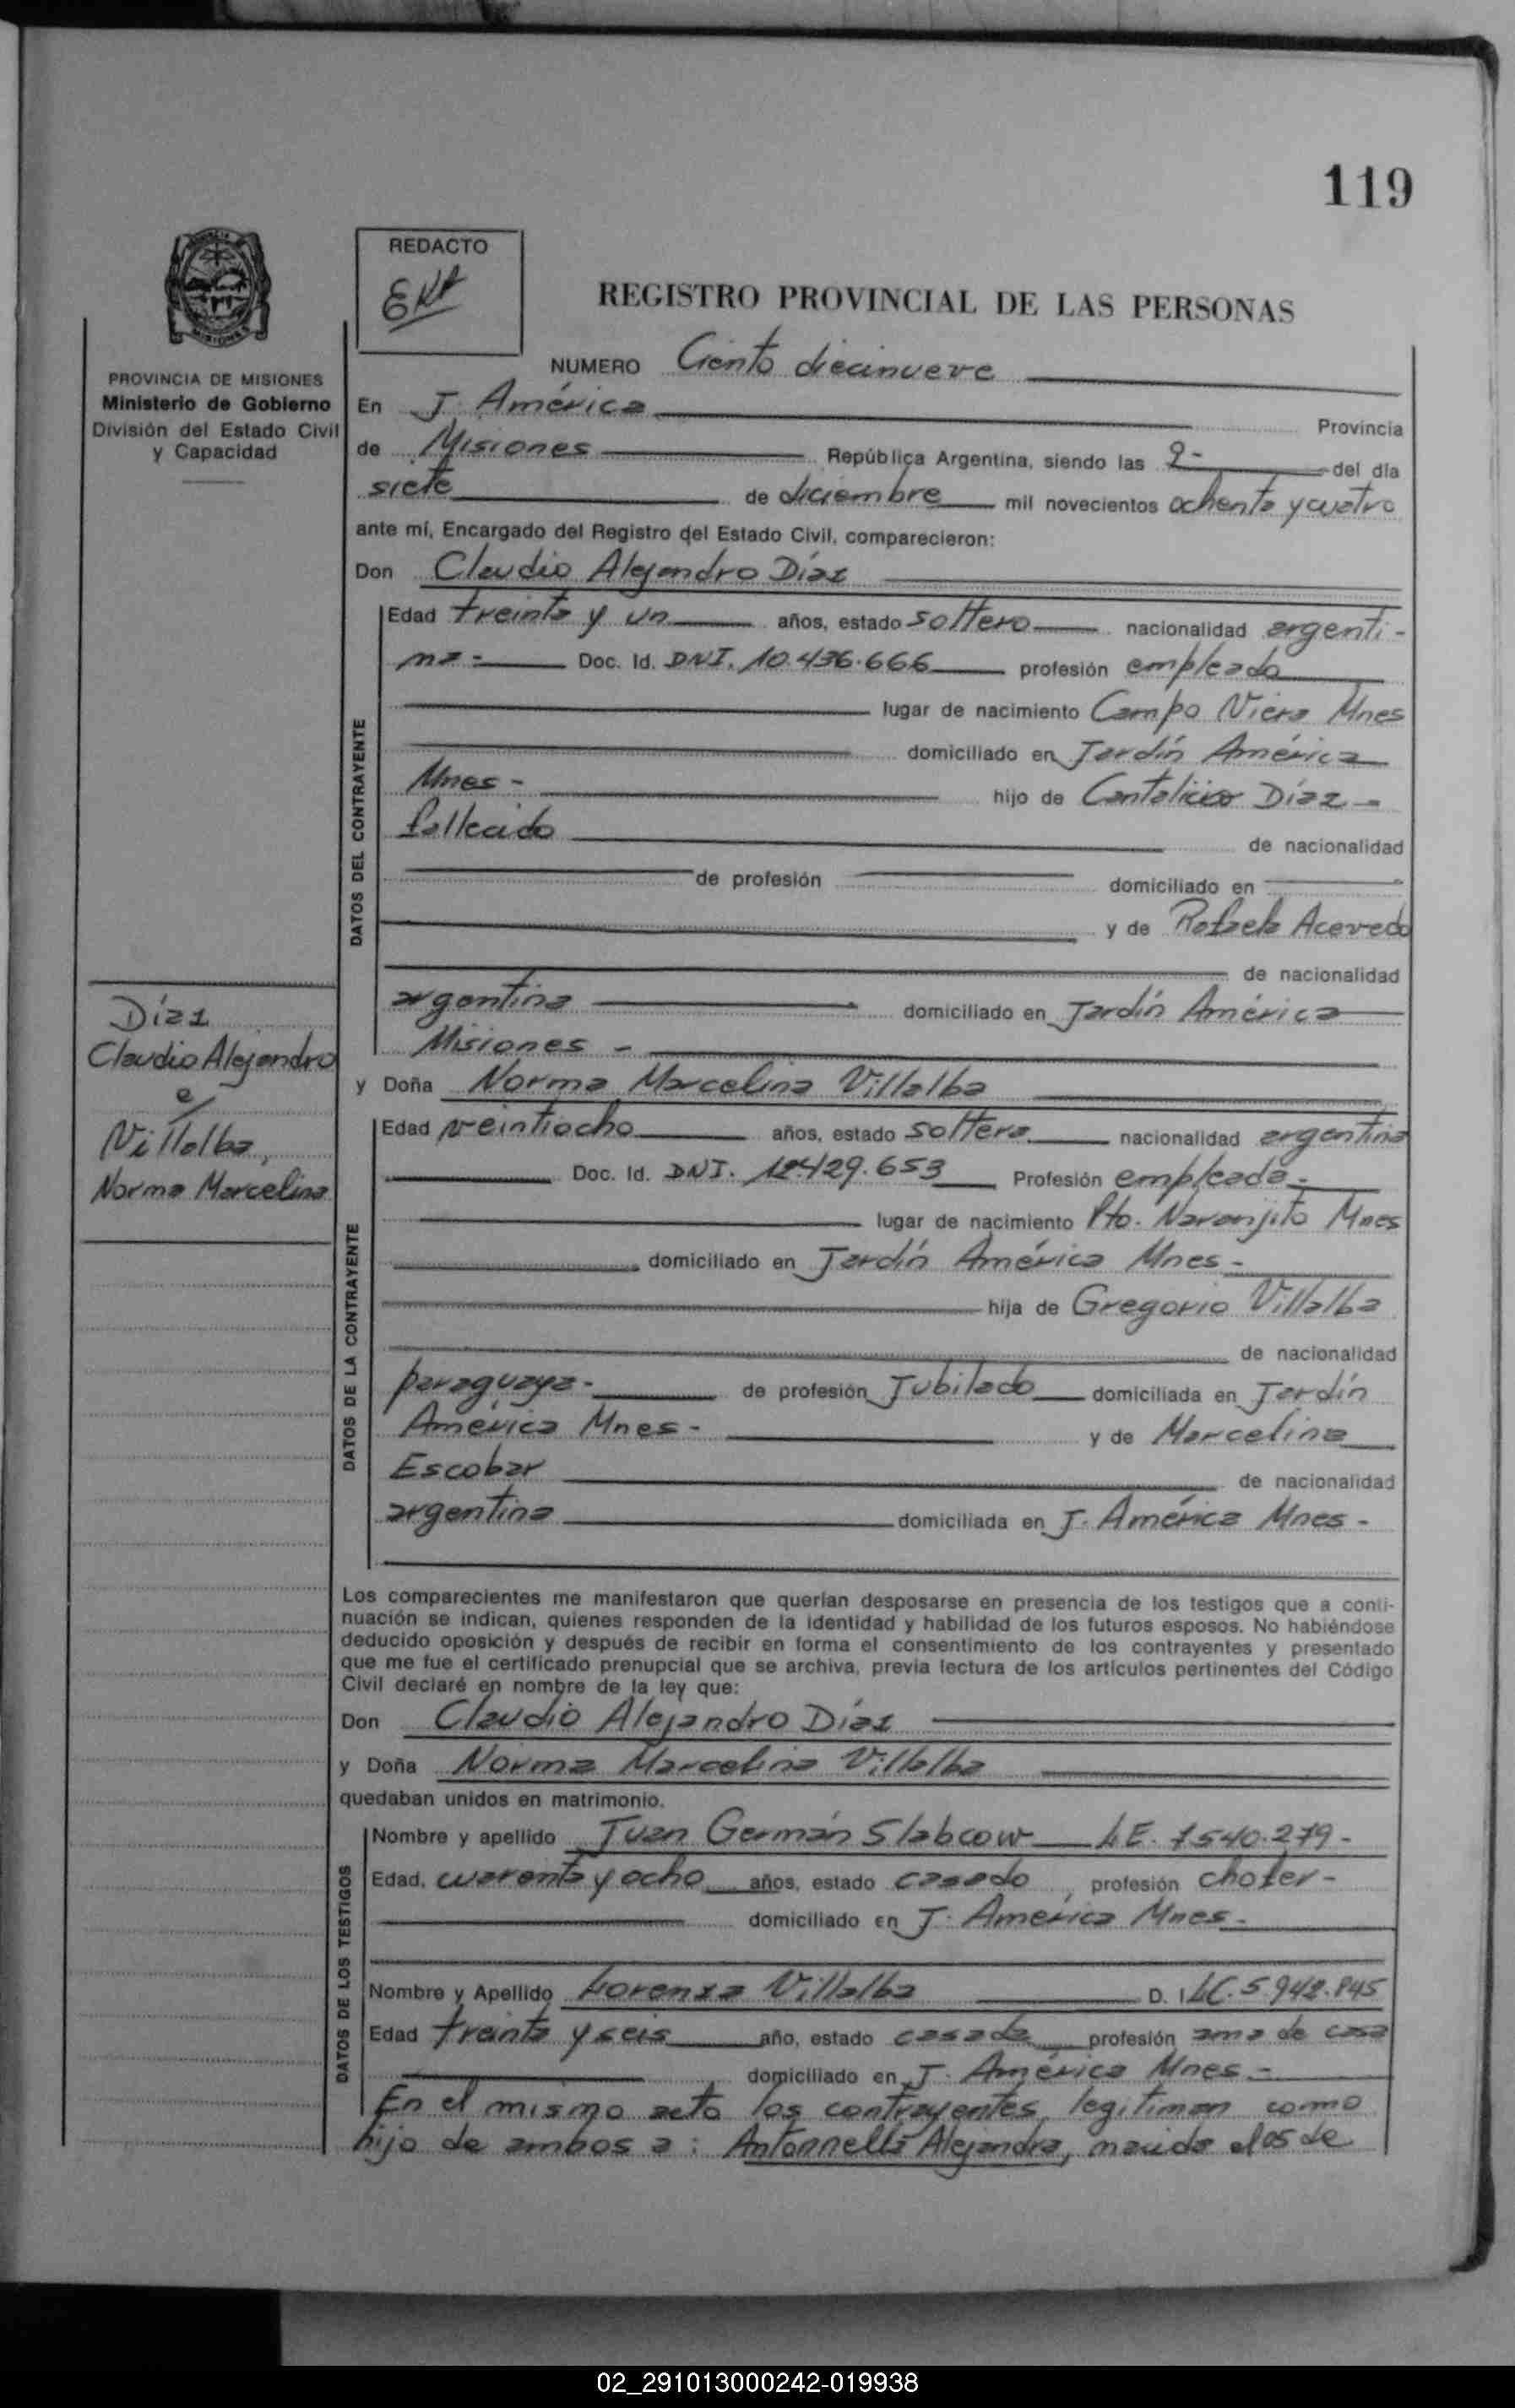 119
REDACTO
REGISTRO PROVINCIAL DE LAS PERSONAS
NUMERO Ciento diecinueve
PROVINCIA DE MISIONES
Ministerio de Gobierno
División del Estado Civil
y Capacidad
En J. América Provincia
de Misiones República Argentina, siendo las 9- del día
siete de diciembre mil novecientos ochenta y cuatro
ante mí, Encargado del Registro del Estado Civil, comparecieron:
Don Claudio Alejandro Díaz
DATOS DEL CONTRAYENTE
Edad treinta y un años, estado soltero nacionalidad argenti-
na- Doc. Id. DNI. 10.436.666 profesión empleado
lugar de nacimiento Campo Viera Mnes
domiciliado en Jardín América
Mnes- hijo de Cantalicio Díaz-
fallecido de nacionalidad
de profesión domiciliado en
y de Rafaela Acevedo
de nacionalidad
argentina domiciliado en Jardín América
Misiones -
Díaz
Claudio Alejandro
c/
Villalba,
Norma Marcelina
y Doña Norma Marcelina Villalba
DATOS DE LA CONTRAYENTE
Edad veintiocho años, estado soltera nacionalidad argentina
Doc. Id. DNI. 12.429.653 Profesión empleada-
lugar de nacimiento Pto. Naranjito Mnes
domiciliado en Jardín América Mnes-
hija de Gregorio Villalba
de nacionalidad
paraguaya- de profesión Jubilado domiciliada en Jardín
América Mnes- y de Marcelina
Escobar de nacionalidad
argentina domiciliada en J. América Mnes-
Los comparecientes me manifestaron que querían desposarse en presencia de los testigos que a conti-
nuación se indican, quienes responden de la identidad y habilidad de los futuros esposos. No habiéndose
deducido oposición y después de recibir en forma el consentimiento de los contrayentes y presentado
que me fue el certificado prenupcial que se archiva, previa lectura de los artículos pertinentes del Código
Civil declaré en nombre de la ley que:
Don Claudio Alejandro Díaz
y Doña Norma Marcelina Villalba
quedaban unidos en matrimonio.
DATOS DE LOS TESTIGOS
Nombre y apellido Juan Germán Slabcow L.E. 7.540.279-
Edad, cuarenta y ocho años, estado casado, profesión chofer-
domiciliado en J. América Mnes-
Nombre y Apellido Lorenza Villalba D. I LC. 5.942.845
Edad treinta y seis año, estado casada profesión ama de casa
domiciliado en J. América Mnes-
En el mismo acto los contrayentes, legitiman como
hijo de ambos a: Antonnella Alejandra, nacida el 05 de
02_291013000242-019938